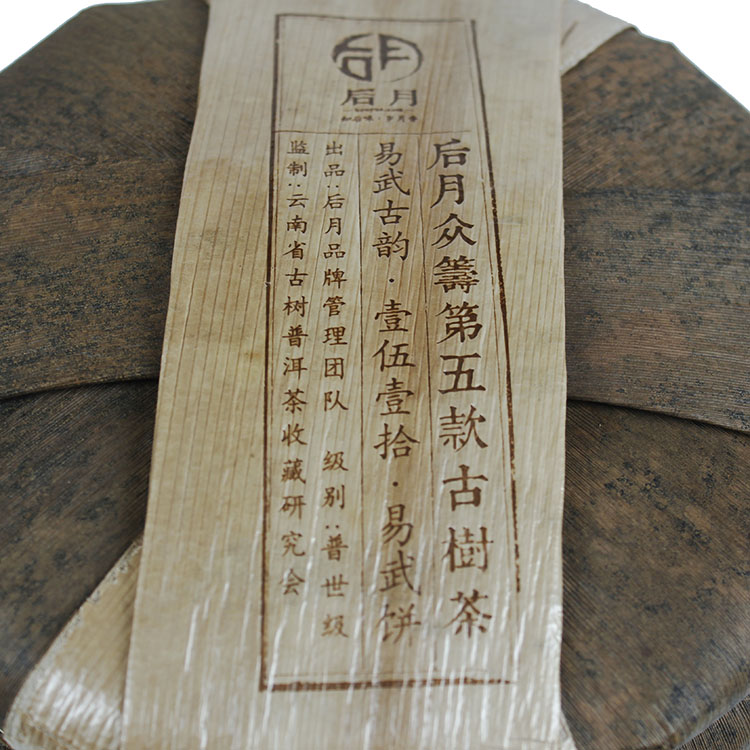 后月
知后味·岁月香
后月众籌第五款古樹茶
易武古韵·壹伍壹拾·易武饼
出品：后月品牌管理团队 级别：普世级
监制：云南省古树普洱茶收藏研究会